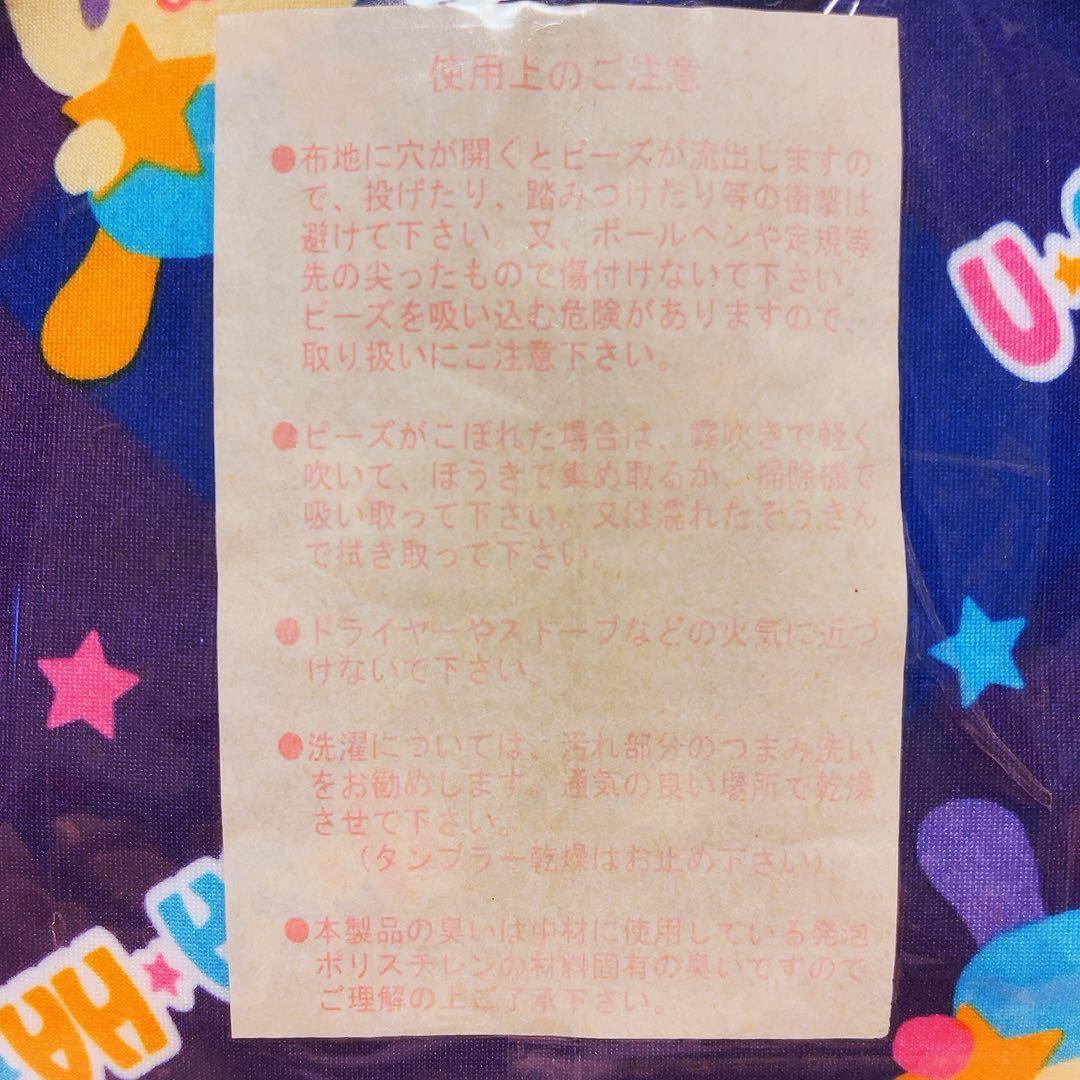 使用上のご注意
●布地に穴が開くとビーズが流出しますの
で、投げたり、踏みつけたり等の衝撃は
避けて下さい。又、ボールペンや定規等
先の尖ったもので傷付けないで下さい。
ビーズを吸い込む危険がありますので、
取り扱いにご注意下さい。
●ビーズがこぼれた場合は、霧吹きで軽く
吹いて、ほうきで集め取るか、掃除機で
吸い取って下さい。又は濡れたぞうきん
で拭き取って下さい。
●ドライヤーやストーブなどの火気に近づ
けないで下さい。
●洗濯については、汚れ部分のつまみ洗い
をお勧めします。通気の良い場所で乾燥
させて下さい。
(タンブラー乾燥はお止め下さい)
●本製品の臭いは中材に使用している発泡
ポリスチレンの材料固有の臭いですので
ご理解の上ご了承下さい。
U